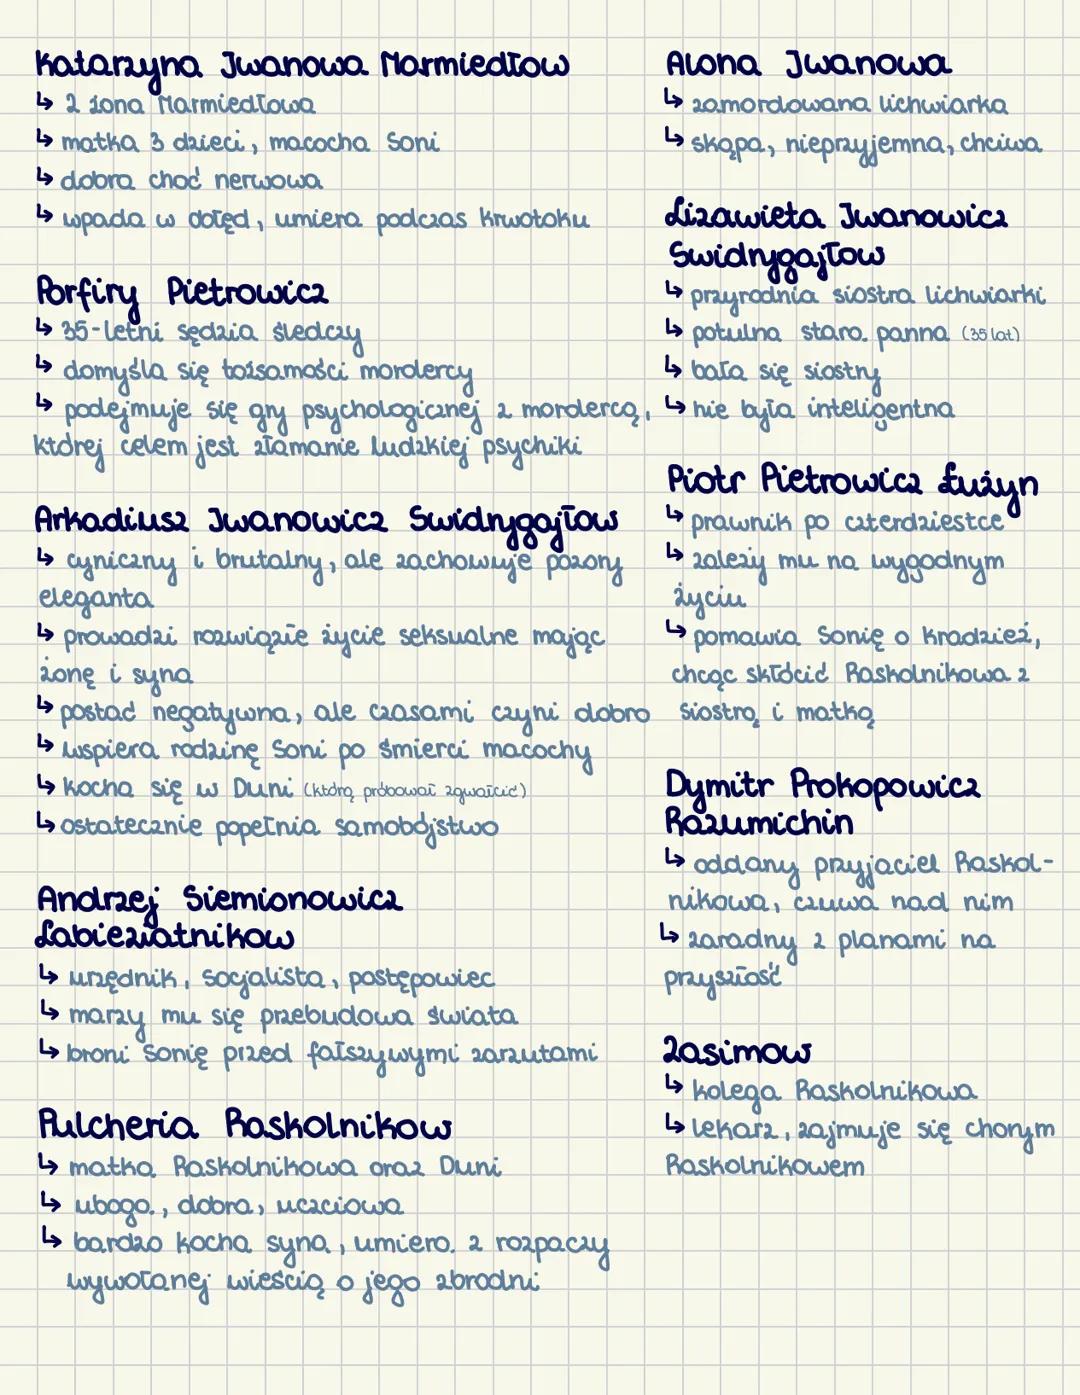 Katarzyna Iwanowa Marmiedłow
↳ 2 żona Marmiedłowa
↳ matka 3 dzieci, macocha Soni
↳ dobra choć nerwowa
↳ wpada w obłęd, umiera podczas krwotoku
Porfiry Pietrowicz
↳ 35-letni sędzia śledczy
↳ domyśla się tożsamości mordercy
↳ podejmuje się gry psychologicznej z mordercą,
której celem jest złamanie ludzkiej psychiki
Arkadiusz Iwanowicz Swidrygajłow
↳ cyniczny i brutalny, ale zachowuje pozory
eleganta
↳ prowadzi rozwiązłe życie seksualne mając
żonę i syna
↳ postać negatywna, ale czasami czyni dobro
↳ wspiera rodzinę Soni po śmierci macochy
↳ kocha się w Duni (którą próbował zgwałcić)
↳ ostatecznie popełnia samobójstwo
Andrzej Siemionowicz
Łabieziatnikow
↳ urzędnik, socjalista, postępowiec
↳ marzy mu się przebudowa świata
↳ broni Sonię przed fałszywymi zarzutami
Pulcheria Raskolnikow
↳ matka Raskolnikowa oraz Duni
↳ uboga, dobra, uczciowa
↳ bardzo kocha syna, umiera z rozpaczy
wywołanej wieścią o jego zbrodni
Alona Iwanowa
↳ zamordowana lichwiarka
↳ skąpa, nieprzyjemna, chciwa
Lizawieta Iwanowicz
Swidrygajłow
↳ przyrodnia siostra lichwiarki
↳ potulna stara panna (35 lat)
↳ bała się siostry
↳ nie była inteligentna
Piotr Pietrowicz Łużyn
↳ prawnik po czterdziestce
↳ zależy mu na wygodnym
życiu
↳ pomawia Sonię o kradzież,
chcąc skłócić Raskolnikowa z
siostrą i matką
Dymitr Prokopowicz
Razumichin
↳ oddany przyjaciel Raskol-
nikowa, czuwa nad nim
↳ zaradny z planami na
przyszłość
Zasimow
↳ kolega Raskolnikowa
↳ lekarz, zajmuje się chorym
Raskolnikowem